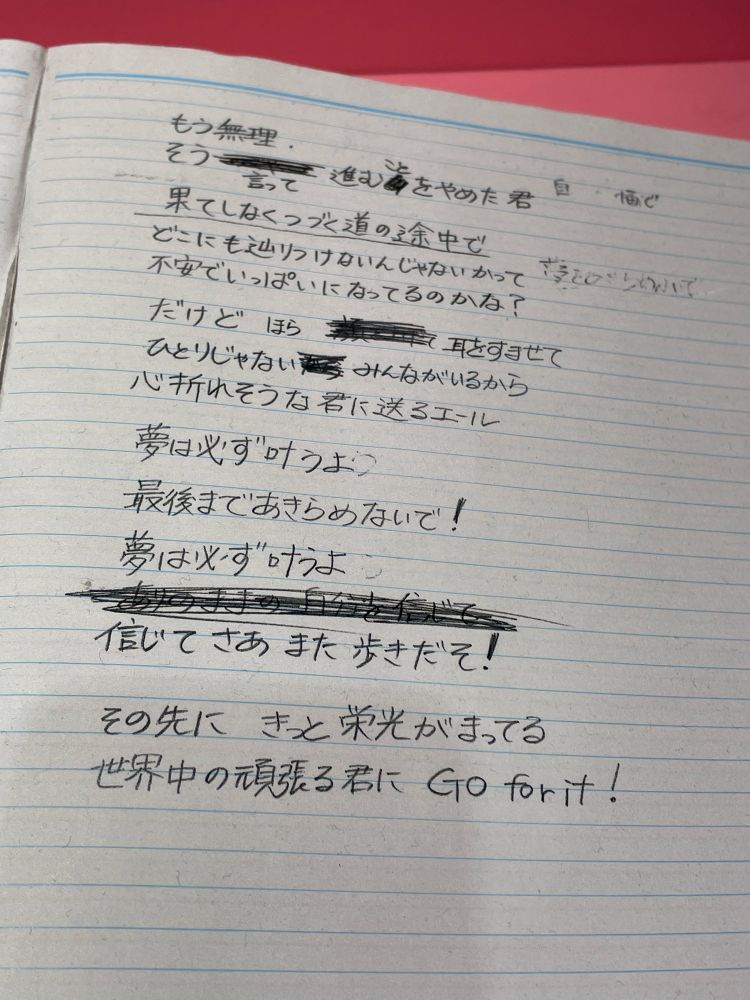 もう無理.
そう言って 進むことをやめた君
果てしなくつづく道の途中で
どこにも辿りつけないんじゃないかって
不安でいっぱいになってるのかな?
だけど ほら 耳をすませて
ひとりじゃない みんながいるから
心折れそうな君に送るエール
夢は必ず叶うよ
最後まであきらめないで!
夢は必ず叶うよ
ありのままの自分を信じて
信じて さあ また 歩きだそ!
その先に きっと栄光がまってる
世界中の頑張る君に Go for it!